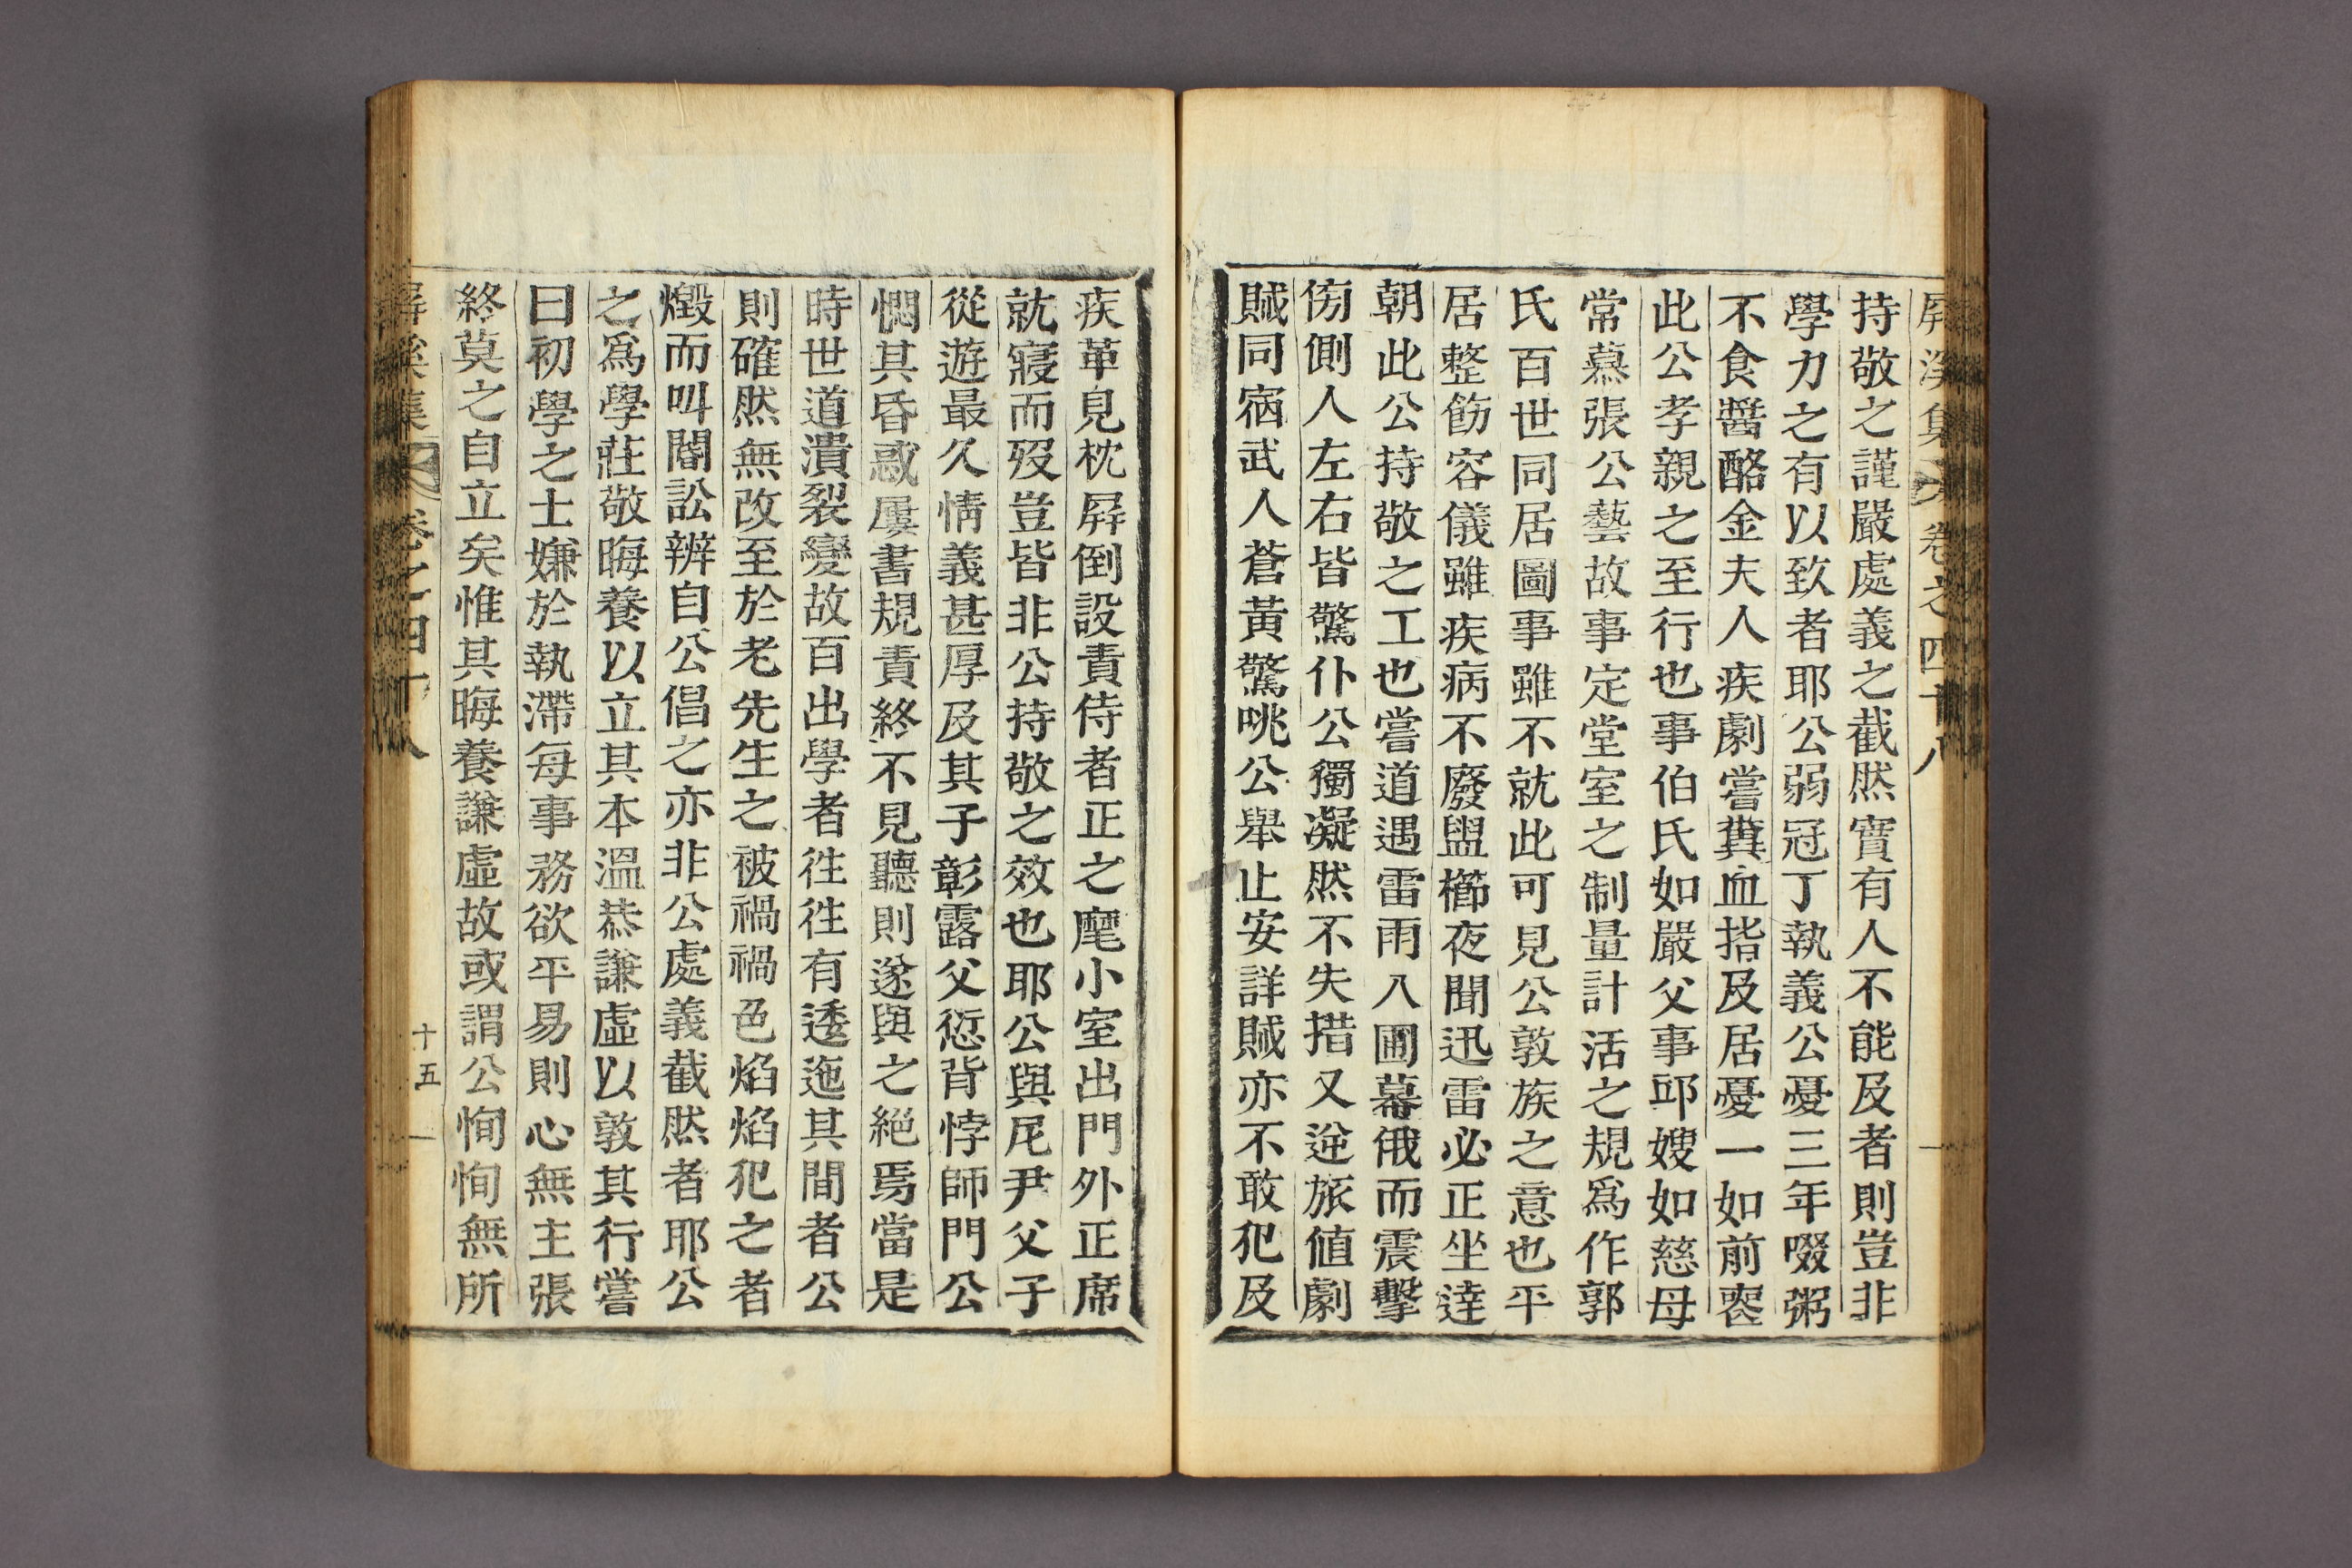 屛溪集 卷之四十八
持敬之謹嚴處義之截然實有人不能及者則豈非
學力之有以致者耶公弱冠丁執義公憂三年啜粥
不食醬酪金夫人疾劇嘗糞血指及居憂一如前喪
此公孝親之至行也事伯氏如嚴父事邱嫂如慈母
常慕張公藝故事定堂室之制量計活之規爲作郭
氏百世同居圖事雖不就此可見公敦族之意也平
居整飭容儀雖疾病不廢盥櫛夜聞迅雷必正坐達
朝此公持敬之工也嘗道遇雷雨入圃幕俄而震擊
傍側人左右皆驚仆公獨凝然不失措又逆旅値劇
賊同宿武人蒼黃驚咷公擧止安詳賊亦不敢犯及
疾革見枕屛倒設責侍者正之麾小室出門外正席
就寢而歿豈皆非公持敬之效也耶公與尼尹父子
從遊最久情義甚厚及其子彰露父愆背悖師門公
憫其昏惑屢書規責終不見聽則遂與之絶焉當是
時世道潰裂變故百出學者徃徃有逶迤其間者公
則確然無改至於老先生之被禍禍色焰焰犯之者
燬而叫閽訟辨自公倡之亦非公處義截然者耶公
之爲學莊敬晦養以立其本溫恭謙虛以敦其行嘗
曰初學之士嫌於執滯每事務欲平易則心無主張
終莫之自立矣惟其晦養謙虛故或謂公恂恂無所
屛溪集 卷之四十八 十五